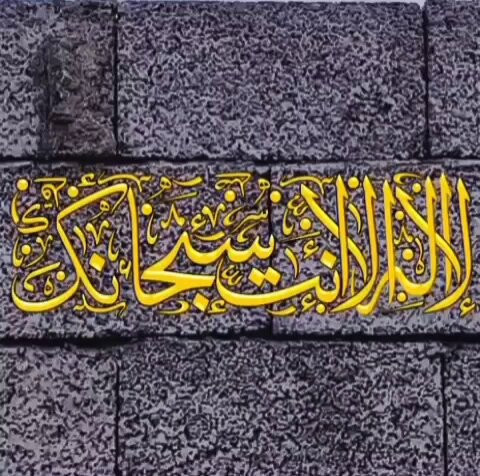 لا إله إلا أنت سبحانك